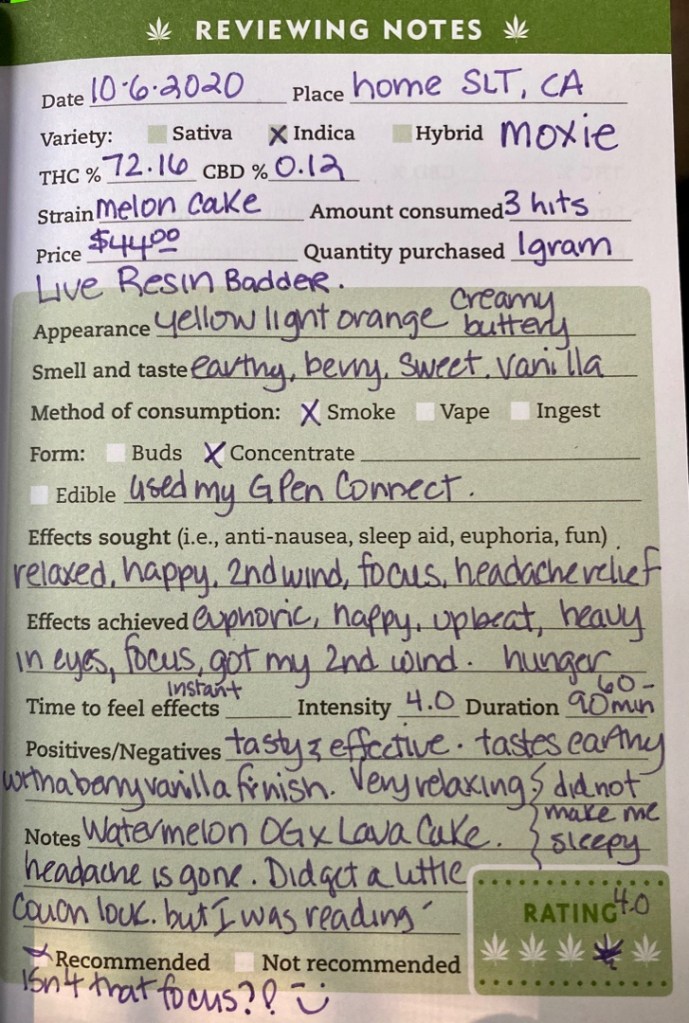 REVIEWING NOTES
Date 10·6·2020 Place home SLT, CA
Variety: Sativa X Indica Hybrid moxie
THC % 72.16 CBD % 0.12
Strain melon cake Amount consumed 3 hits
Price $44.00 Quantity purchased 1gram
Live Resin Badder.
Appearance yellow light orange creamy buttery
Smell and taste earthy, berry, sweet, vanilla
Method of consumption: X Smoke Vape Ingest
Form: Buds X Concentrate
Edible used my G Pen Connect.
Effects sought (i.e., anti-nausea, sleep aid, euphoria, fun)
relaxed, happy, 2nd wind, focus, headache relief
Effects achieved euphoric, happy, upbeat, heavy
in eyes, focus, got my 2nd wind. hunger
Time to feel effects instant Intensity 4.0 Duration 60-90min
Positives/Negatives tasty & effective. tastes earthy
with a berry vanilla finish. Very relaxing } did not
make me
Notes Watermelon OG x Lava Cake. } sleepy
headache is gone. Did get a little
couch lock. but I was reading
RATING 4.0
X Recommended Not recommended
isn't that focus?!